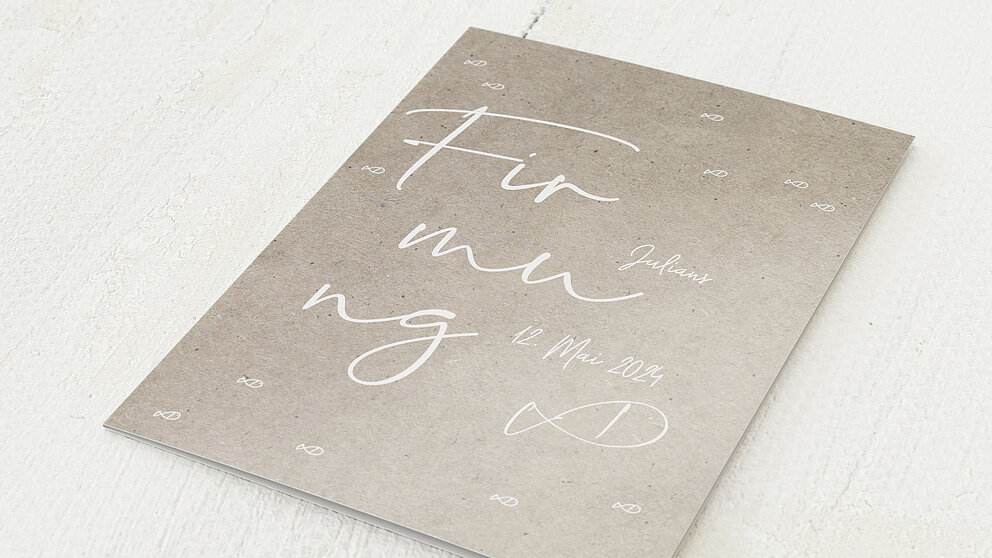 Fir
mu
ng
Julians
12. Mai 2024